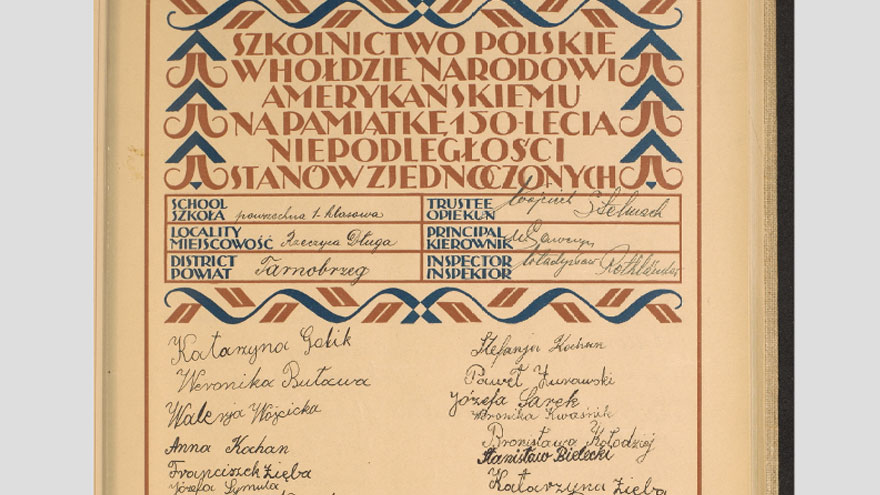 SZKOLNICTWO POLSKIE
W HOŁDZIE NARODOWI
AMERYKAŃSKIEMU
NA PAMIĄTKĘ 150-LECIA
NIEPODLEGŁOŚCI
STANÓW ZJEDNOCZONYCH
SCHOOL
SZKOŁA powszechna 1-klasowa
TRUSTEE
OPIEKUN Wojciech Stelmach
LOCALITY
MIEJSCOWOŚĆ Rzeczyca Długa
PRINCIPAL
KIEROWNIK
DISTRICT
POWIAT Tarnobrzeg
INSPECTOR
INSPEKTOR Władysław
Katarzyna Golik
Weronika Butawa
Walerja Wójcicka
Anna Kochan
Franciszek Zięba
Józefa Symula
Stefanja Kochan
Paweł Żurawski
Józefa Sarek
Weronika Kwaśnik
Bronisława Kołodziej
Stanisław Bielecki
Katarzyna Zięba